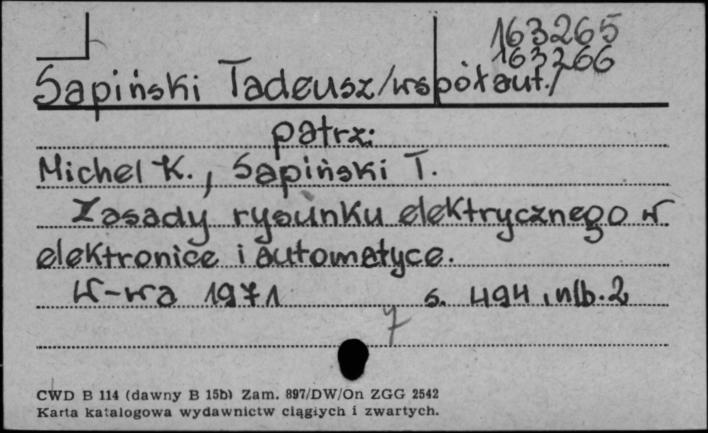 163265
163266
Sapiński Tadeusz/współaut./
patrz:
Michel K., Sapiński T.
Zasady rysunku elektrycznego w
elektronice i automatyce.
W-wa 1971 s. 494, nlb. 2
7
CWD B 114 (dawny B 15b) Zam. 897/DW/On ZGG 2542
Karta katalogowa wydawnictw ciągłych i zwartych.